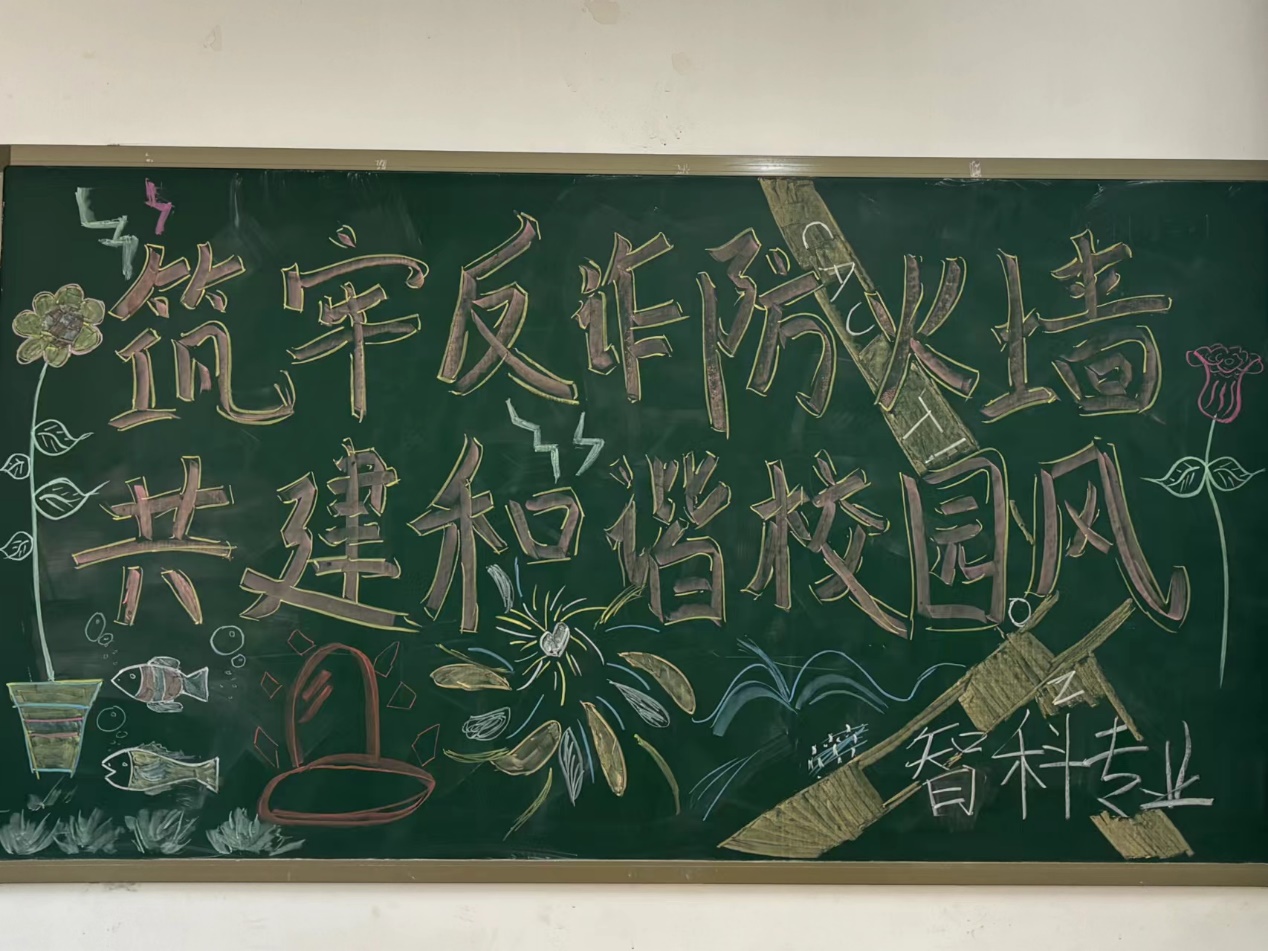 筑牢反诈防火墙
共建和谐校园风
CAUTION
智科专业